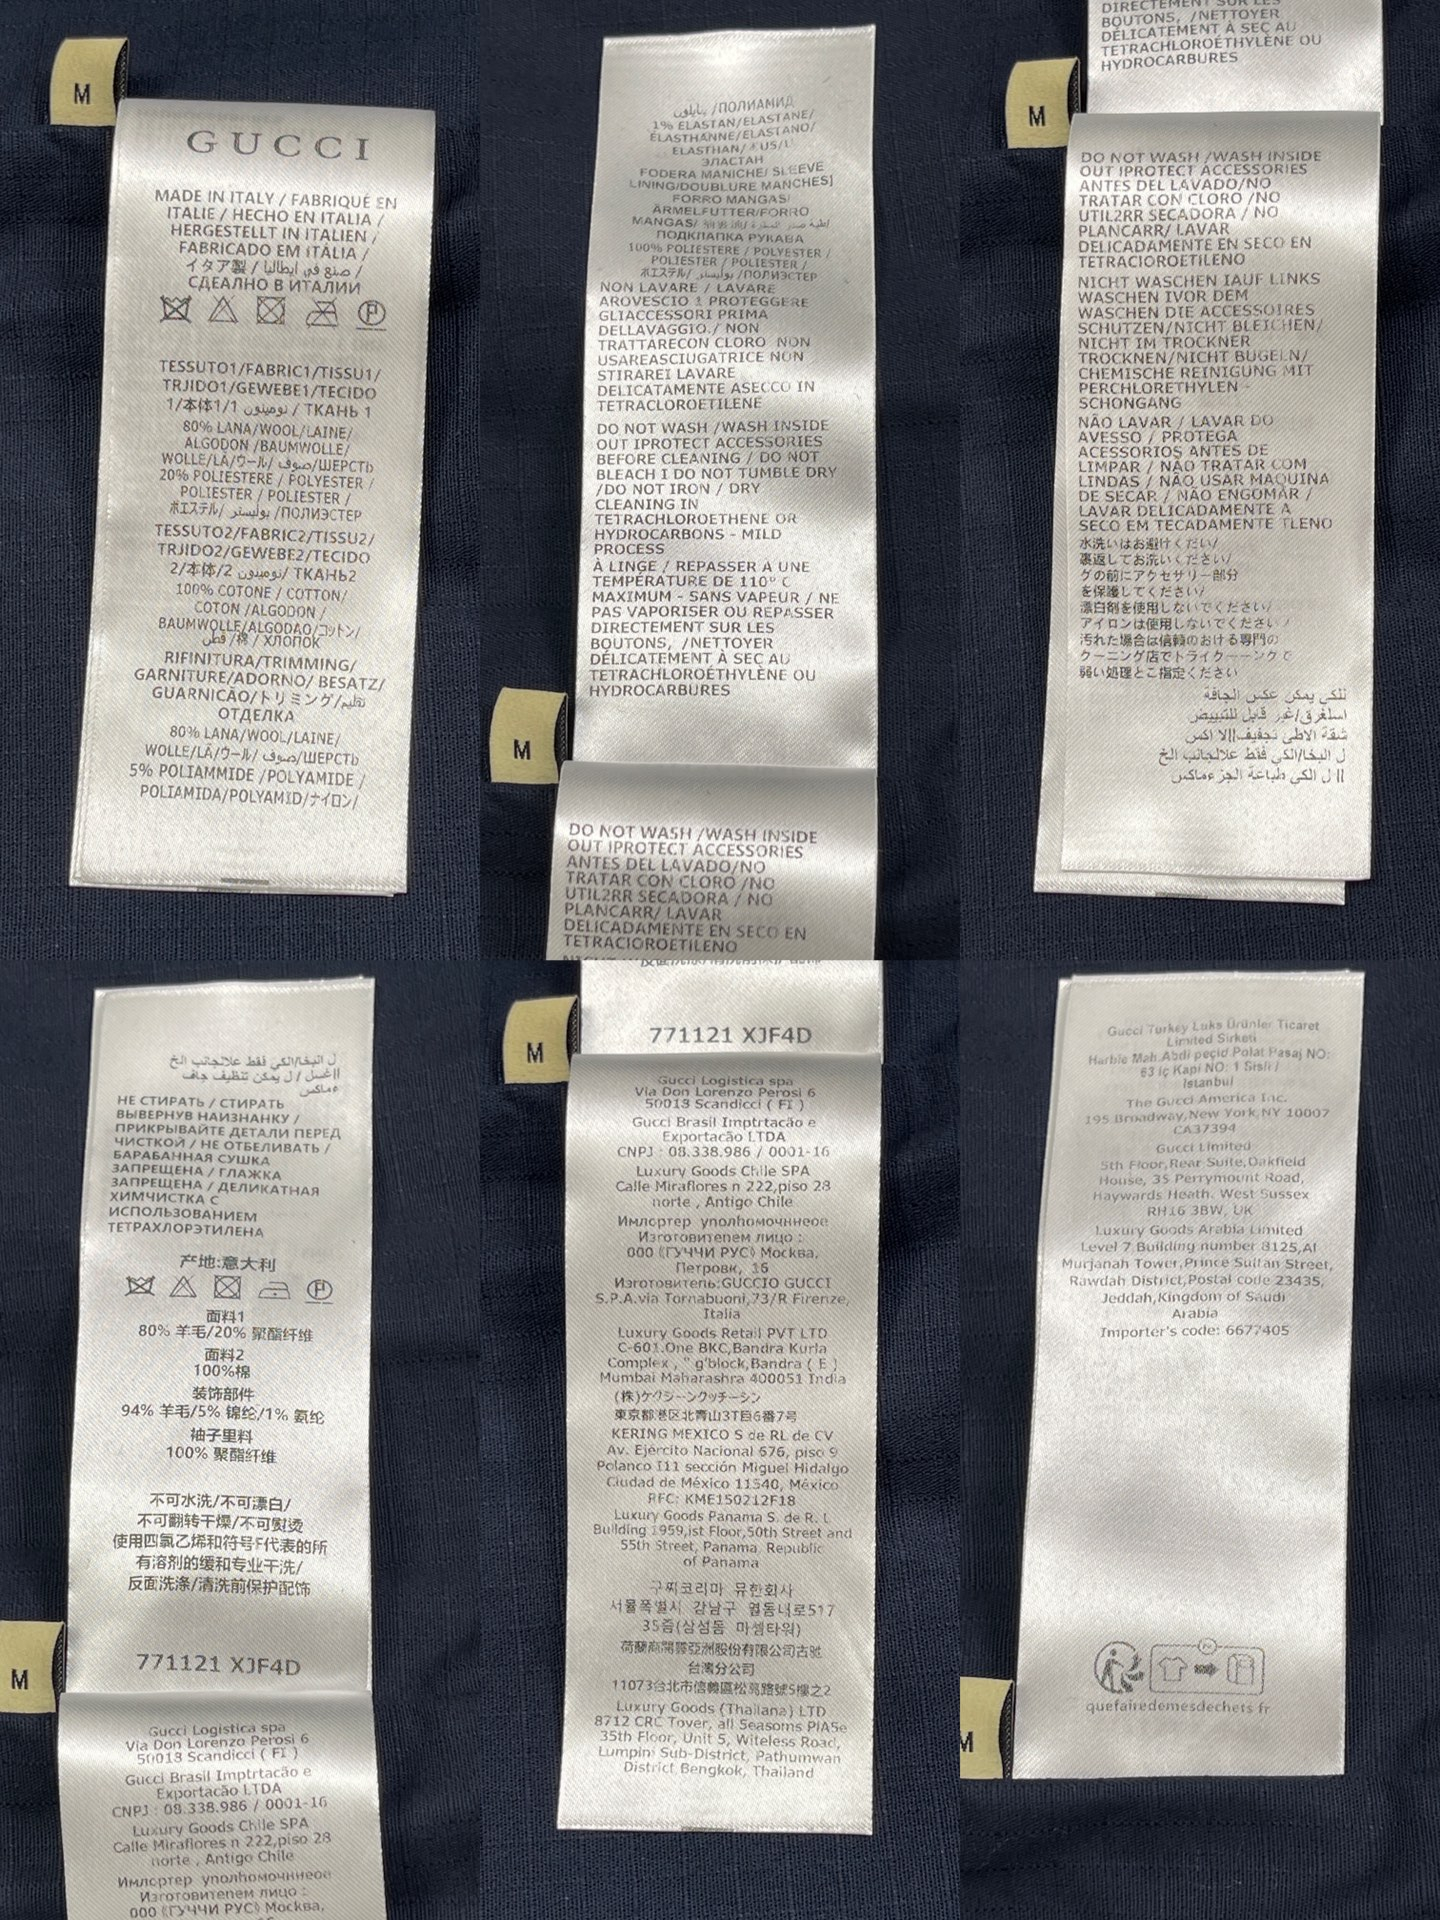 M
GUCCI
MADE IN ITALY / FABRIQUÉ EN
ITALIE / HECHO EN ITALIA /
HERGESTELLT IN ITALIEN /
FABRICADO EM ITÁLIA /
イタア製 / صنع في ايطاليا /
СДЕАЛНО В ИТАЛИИ
P
TESSUTO1/FABRIC1/TISSU1/
TRJIDO1/GEWEBE1/TECIDO
1/本体1/1 نومينون / ТКАНЬ 1
80% LANA/WOOL/LAINE/
ALGODON /BAUMWOLLE/
WOLLE/LÃ/ウール/ صوف/ШЕРСТЬ
20% POLIESTERE / POLYESTER /
POLIESTER / POLIESTER /
ポエステル/ بوليستر /ПОЛИЭСТЕР
TESSUTO2/FABRIC2/TISSU2/
TRJIDO2/GEWEBE2/TECIDO
2/本体/2 نومينون/ ТКАНЬ2
100% COTONE / COTTON/
COTON /ALGODON /
BAUMWOLLE/ALGODAO/コットン/
قطن /棉 / ХЛОПОК
RIFINITURA/TRIMMING/
GARNITURE/ADORNO/ BESATZ/
GUARNICÃO/トリミング/تقليم
ОТДЕЛКА
80% LANA/WOOL/LAINE/
WOLLE/LÃ/ウール/ صوف/ШЕРСТЬ
5% POLIAMMIDE /POLYAMIDE /
POLIAMIDA/POLYAMID/ナイロン/
/ПОЛИАМИД
1% ELASTAN/ELASTANE/
ELASTHANNE/ELASTANO/
ELASTHAN/
ЭЛАСТАН
FODERA MANICHE/ SLEEVE
LINING/DOUBLURE MANCHES]
FORRO MANGAS/
ÄRMELFUTTER/FORRO
MANGAS/
ПОДКЛАПКА РУКАВА
100% POLIESTERE / POLYESTER /
POLIESTER / POLIESTER /
ポエステル/ بوليستر /ПОЛИЭСТЕР
NON LAVARE / LAVARE
AROVESCIO 1 PROTEGGERE
GLIACCESSORI PRIMA
DELLAVAGGIO./ NON
TRATTARECON CLORO NON
USAREASCIUGATRICE NON
STIRAREI LAVARE
DELICATAMENTE ASECCO IN
TETRACLOROETILENE
DO NOT WASH /WASH INSIDE
OUT IPROTECT ACCESSORIES
BEFORE CLEANING / DO NOT
BLEACH I DO NOT TUMBLE DRY
/DO NOT IRON / DRY
CLEANING IN
TETRACHLOROETHENE OR
HYDROCARBONS - MILD
PROCESS
À LINGE / REPASSER À UNE
TEMPÉRATURE DE 110° C
MAXIMUM - SANS VAPEUR / NE
PAS VAPORISER OU REPASSER
DIRECTEMENT SUR LES
BOUTONS, /NETTOYER
DÉLICATEMENT À SEC AU
TETRACHLOROÉTHYLÈNE OU
HYDROCARBURES
M
DO NOT WASH /WASH INSIDE
OUT IPROTECT ACCESSORIES
ANTES DEL LAVADO/NO
TRATAR CON CLORO /NO
UTIL2RR SECADORA / NO
PLANCARR/ LAVAR
DELICADAMENTE EN SECO EN
TETRACIOROETILENO
DIRECTEMENT SUR LES
BOUTONS, /NETTOYER
DÉLICATEMENT À SEC AU
TETRACHLOROÉTHYLÈNE OU
HYDROCARBURES
M
DO NOT WASH /WASH INSIDE
OUT IPROTECT ACCESSORIES
ANTES DEL LAVADO/NO
TRATAR CON CLORO /NO
UTIL2RR SECADORA / NO
PLANCARR/ LAVAR
DELICADAMENTE EN SECO EN
TETRACIOROETILENO
NICHT WASCHEN IAUF LINKS
WASCHEN IVOR DEM
WASCHEN DIE ACCESSOIRES
SCHUTZEN/NICHT BLEICHEN/
NICHT IM TROCKNER
TROCKNEN/NICHT BUGELN/
CHEMISCHE REINIGUNG MIT
PERCHLORETHYLEN -
SCHONGANG
NÃO LAVAR / LAVAR DO
AVESSO / PROTEGA
ACESSORIOS ANTES DE
LIMPAR / NÃO TRATAR COM
LINDAS / NÃO USAR MAQUINA
DE SECAR / NÃO ENGOMAR /
LAVAR DELICADAMENTE A
SECO EM TECADAMENTE TLENO
水洗いはお避けくだい/
裏返してお洗いください/
グの前にアクセサリー部分
を保護してください/
漂白剤を使用しないでください/
アイロンは使用しないでください/
汚れた場合は信頼のおける専門の
クーニング店でトライクーーングで
弱い処理とご指定ください
للكي يمكن عكس الجافة
اسلغرق/غير قابل للتبييض
شقة الاطى تجفيف||لا اكس
ل البخا/الكي فقط علالجانب الخ
|| ل الكي طباعة الجز ءماكس
ل البخا/الكي فقط علالجانب الخ
||غسل / ل يمكن تنظيف جاف
ءماكس
НЕ СТИРАТЬ / СТИРАТЬ
ВЫВЕРНУВ НАИЗНАНКУ /
ПРИКРЫВАЙТЕ ДЕТАЛИ ПЕРЕД
ЧИСТКОЙ / НЕ ОТБЕЛИВАТЬ /
БАРАБАННАЯ СУШКА
ЗАПРЕЩЕНА / ГЛАЖКА
ЗАПРЕЩЕНА / ДЕЛИКАТНАЯ
ХИМЧИСТКА С
ИСПОЛЬЗОВАНИЕМ
ТЕТРАХЛОРЭТИЛЕНА
产地:意大利
P
面料1
80% 羊毛/20% 聚酯纤维
面料2
100%棉
装饰部件
94% 羊毛/5% 锦纶/1% 氨纶
袖子里料
100% 聚酯纤维
不可水洗/不可漂白/
不可翻转干燥/不可熨烫
使用四氯乙烯和符号F代表的所
有溶剂的缓和专业干洗/
反面洗涤/清洗前保护配饰
771121 XJF4D
M
Gucci Logistica spa
Via Don Lorenzo Perosi 6
50013 Scandicci ( FI )
Gucci Brasil Imptrtacão e
Exportacão LTDA
CNPJ : 08.338.986 / 0001-16
Luxury Goods Chile SPA
Calle Miraflores n 222,piso 28
norte , Antigo Chile
Имлортер уполhомочннеое
Изготовитепем лицо :
000 《ГУЧЧИ РУС》 Москва,
771121 XJF4D
M
Gucci Logistica spa
Via Don Lorenzo Perosi 6
50013 Scandicci ( FI )
Gucci Brasil Imptrtacão e
Exportacão LTDA
CNPJ : 08.338.986 / 0001-16
Luxury Goods Chile SPA
Calle Miraflores n 222,piso 28
norte , Antigo Chile
Имлортер уполhомочннеое
Изготовитепем лицо :
000 《ГУЧЧИ РУС》 Москва,
Петровк, 16
Изготовитель:GUCCIO GUCCI
S.P.A.via Tornabuoni,73/R Firenze,
Italia
Luxury Goods Retail PVT LTD
C-601.One BKC,Bandra Kurla
Complex , " g'block,Bandra ( E )
Mumbai Maharashra 400051 India
(株)ケグジーンクッチーシン
東京都港区北青山3T目6番7号
KERING MEXICO S de RL de CV
Av. Ejército Nacional 676, piso 9
Polanco I11 sección Miguel Hidalgo
Ciudad de México 11540, México
RFC: KME150212F18
Luxury Goods Panama S. de R. L
Building 1959,ist Floor,50th Street and
55th Street, Panama, Republic
of Panama
구찌코리마 뮤한회사
서률폭별시 감남구 엽돔내로517
35즘(삼섬돔 마셈타워)
荷蘭商開雲亞洲股份有限公司古馳
台灣分公司
11073台北市信義區松高路號5樓之2
Luxury Goods (Thailana) LTD
8712 CRC Tover, all Seasoms PIASe
35th Floor, Unit 5, Witeless Road,
Lumpini Sub-District, Pathumwan
District Bengkok, Thailand
Gucci Turkey Luks Ürünler Ticaret
Limited Sirketi
Harble Mah.Abdi peçid Polat Pasaj NO:
63 iç Kapi NO: 1 Sisli /
Istanbul
The Gucci America Inc.
195 Broadway,New York,NY 10007
CA37394
Gucci Limited
5th Floor,Rear Suite,Oakfield
House, 35 Perrymount Road,
Haywards Heath. West Sussex
RH16 3BW, UK
Luxury Goods Arabia Limited
Level 7 Building number 8125,Al
Murjanah Tower,Prince Sultan Street,
Rawdah District,Postal code 23435,
Jeddah,Kingdom of Saudi
Arabia
Importer's code: 6677405
quefairedemesdechets fr
M